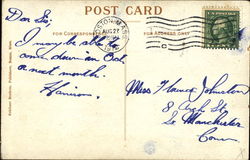 POST CARD
FOR CORRESPONDENCE
FOR ADDRESS ONLY
AUG 27
Dear Sir;
I may be able to
come down in Oct.
or next month.
Harrison.
Miss Johnston
8 Arch St.
So Manchester
Conn